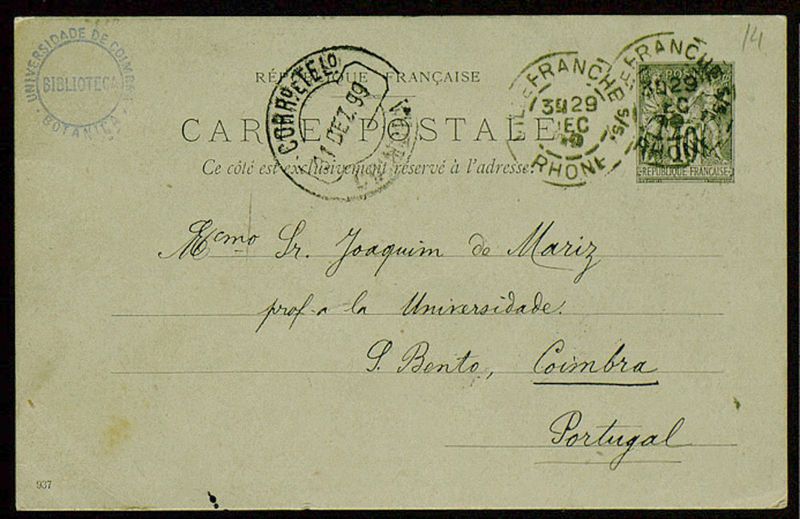 14
UNIVERSIDADE DE COIMBRA
BIBLIOTECA
BOTANICA
RÉPUBLIQUE FRANÇAISE
CARTE POSTALE
Ce côté est exclusivement réservé à l'adresse.
CORRo. E TELo.
11 DEZ. 99
VILLEFRANCHE S/S.
29
DEC
RHONE
VILLEFRANCHE S/S.
29
DEC
POSTES
10
RÉPUBLIQUE FRANÇAISE
Sr. Joaquim de Mariz
prof. a la Universidade.
S. Bento, Coimbra
Portugal
937